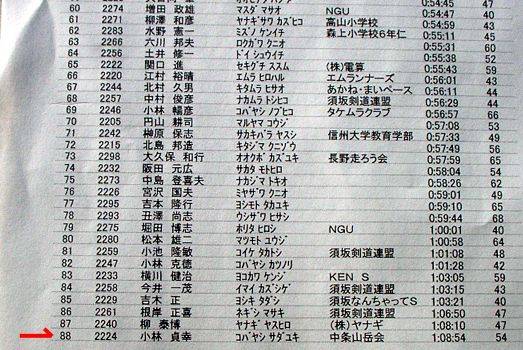 60 2274 増田 政雄 マスダ マサオ NGU 0:54:45 47
61 2271 柳澤 和彦 ヤナギサワ カズヒコ 高山小学校 0:54:47 40
62 2283 水野 憲一 ミズノ ケンイチ 森上小学校6年仁 0:55:11 45
63 2266 六川 邦夫 ロクガワ クニオ 0:55:31 60
64 2256 土井 修一 ドイ シュウイチ 0:55:38 52
65 2222 関口 進 セキグチ ススム (株)電算 0:55:43 59
66 2220 江村 裕晴 エムラ ヒロハル エムランナーズ 0:56:01 43
67 2244 北村 久男 キタムラ ヒサオ あかね・まいペース 0:56:11 44
68 2257 中村 俊彦 ナカムラ トシヒコ 須坂剣道連盟 0:56:29 44
69 2246 小林 暢彦 コバヤシ ノブヒコ タケムラクラブ 0:56:57 66
70 2205 円山 耕司 マルヤマ コウジ 0:57:08 53
71 2242 榊原 保志 サカキバラ ヤスシ 信州大学教育学部 0:57:33 49
72 2215 北島 邦造 キタジマ クニゾウ 0:57:49 56
73 2298 大久保 和行 オオクボ カズユキ 長野走ろう会 0:57:59 65
74 2232 阪田 元広 サカタ モトヒロ 0:58:04 54
75 2273 中島 登喜夫 ナカジマ トキオ 0:58:26 62
76 2226 宮沢 国夫 ミヤザワ クニオ 0:59:01 49
77 2295 吉本 隆行 ヨシモト タカユキ 0:59:10 65
78 2293 丑澤 尚志 ウシザワ ヒサシ 0:59:44 68
79 2275 堀田 博志 ホリタ ヒロシ NGU 1:00:01 40
80 2280 松本 雄二 マツモト ユウジ 1:00:58 64
81 2259 小池 隆敏 コイケ タカトシ 須坂剣道連盟 1:01:08 48
82 2247 小林 克徳 コバヤシ カツノリ 1:01:28 42
83 2233 横川 健治 ヨコカワ ケンジ KEN S 1:03:05 59
84 2258 今井 一茂 イマイ カズシゲ 須坂剣道連盟 1:03:15 43
85 2229 吉木 正 ヨシキ タダシ 須坂なんちゃってS 1:03:21 40
86 2261 根岸 正喜 ネギシ マサキ 須坂剣道連盟 1:06:50 47
87 2240 柳 泰博 ヤナギ ヤスヒロ (株)ヤナギ 1:08:10 47
88 2224 小林 貞幸 コバヤシ サダユキ 中条山岳会 1:08:54 54